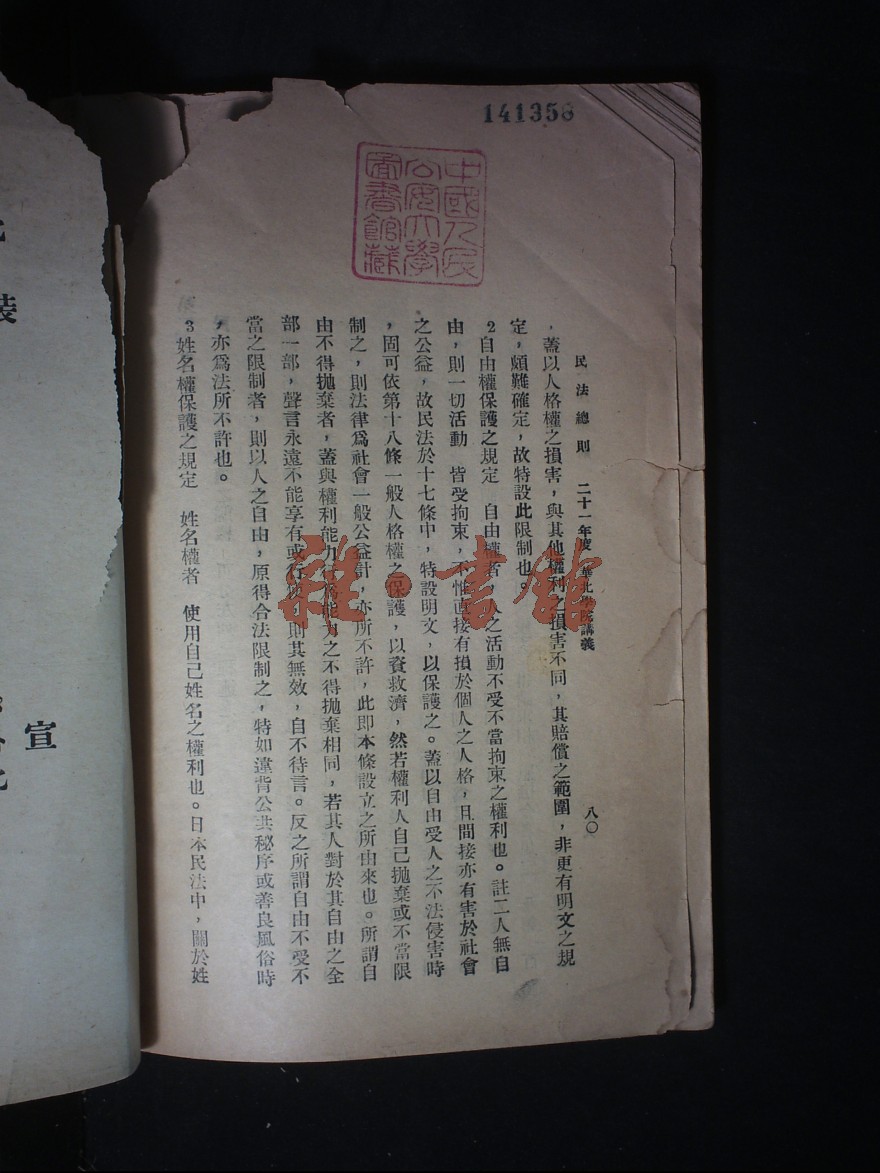 141356
中國人民
公安大學
圖書館藏
民法總則 二十一年度 華北學院講義 八〇
，蓋以人格權之損害，與其他權利之損害不同，其賠償之範圍，非更有明文之規
定，頗難確定，故特設此限制也。
2自由權保護之規定 自由權者，人之活動不受不當拘束之權利也。註二人無自
由，則一切活動 皆受拘束，不惟直接有損於個人之人格，且間接亦有害於社會
之公益，故民法於十七條中，特設明文，以保護之。蓋以自由受人之不法侵害時
，固可依第十八條一般人格權之保護，以資救濟，然若權利人自己拋棄或不當限
制之，則法律爲社會一般公益計，亦所不許，此即本條設立之所由來也。所謂自
由不得拋棄者，蓋與權利能力行爲能力之不得拋棄相同，若其人對於其自由之全
部一部，聲言永遠不能享有或行使，則其無效，自不待言。反之所謂自由不受不
當之限制者，則以人之自由，原得合法限制之，特如違背公共秘序或善良風俗時
，亦爲法所不許也。
3姓名權保護之規定 姓名權者 使用自己姓名之權利也。日本民法中，關於姓
雜·書館
裝
宣